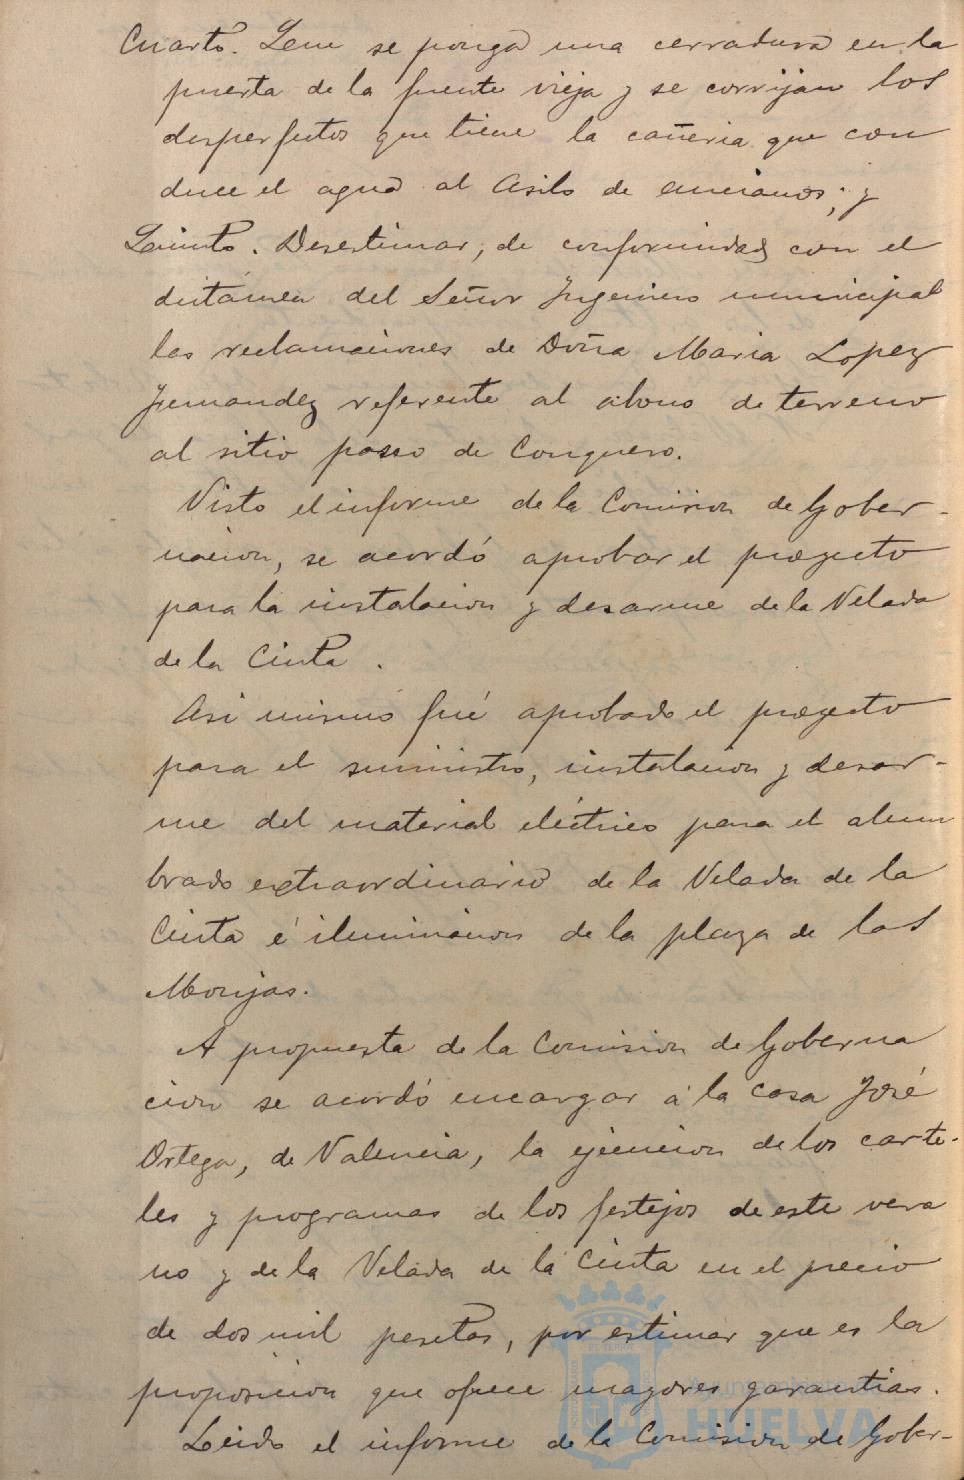 Cuarto. Que se ponga una cerradura en la
puerta de la fuente vieja y se corrijan los
desperfectos que tiene la cañeria que con
duce el agua al Asilo de ancianos; y
Quinto. Desestimar, de conformidad con el
dictámen del Señor Ingeniero municipal
las reclamaciones de Doña Maria Lopez
Fernandez referente al abono de terreno
al sitio paseo de Conquero.
Visto el informe de la Comision de Gober-
nacion, se acordó aprobar el proyecto
para la instalacion y desarme de la Velada
de la Cinta.
Asi mismo fué aprobado el proyecto
para el suministro, instalacion y desar-
me del material eléctrico para el alum
brado extraordinario de la Velada de la
Cinta é iluminacion de la plaza de las
Monjas.
A propuesta de la Comision de Goberna
cion se acordó encargar á la casa José
Ortega, de Valencia, la ejecucion de los carte-
les y programas de los festejos de este vera
no y de la Velada de la Cinta en el precio
de dos mil pesetas, por estimar que es la
proposicion que ofrece mayores garantias.
Leido el informe de la Comision de Gober-
Ayuntamiento de
HUELVA